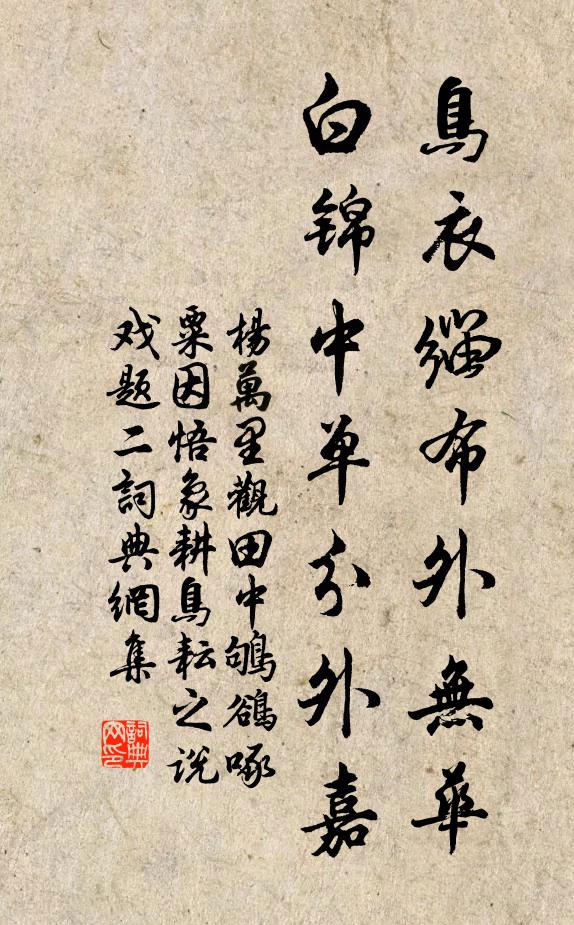 烏衣緇布外無華
白錦中单分外嘉
楊萬里觀田中鴝鵒啄
粟因悟象耕鳥耘之説
戏題二詞典網集
詞典
网印